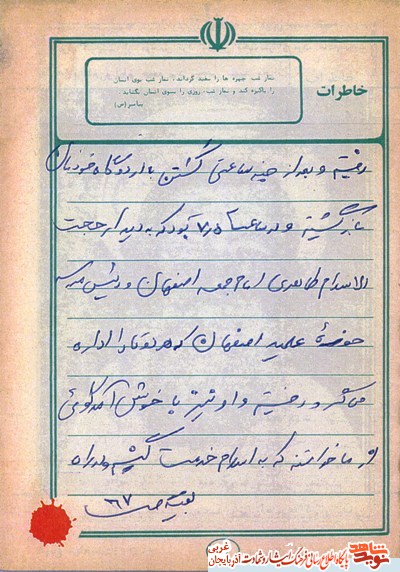 خاطرات
نماز شب چهره ها را سفید گرداند، نماز شب بوی انسان
را پاکیزه کند و نماز شب، روزی را بسوی انسان بکشاند
پیامبر (ص)
رفتیم و بعد از چند ساعتی گشتن به اردوگاه خودمان
بازگشتیم و در ساعت ۷/۵ بود که به دیدار حجت
الاسلام طاهری امام جمعه اصفهان و رئیس مدرسه
حوضهٔ علمیه اصفهان که هر دو را اداره
می کرد رفتیم و او نیز با خوش آمدگوئی
از ما خواستند که به اسلام خدمت کنیم و در راه
بقیه ص ۶۷
نوید شاهد
پایگاه اطلاع رسانی فرهنگ ایثار و شهادت آذربایجان غربی